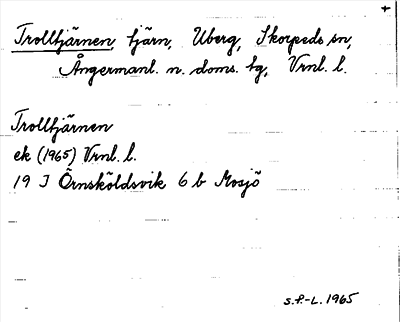 +
Trolltjärnen, tjärn, Uberg, Skorpeds sn,
Ångermanl. n. doms. tg, Vrnl. l.
Trolltjärnen
ek (1965) Vrnl. l.
19 J Örnsköldsvik 6 b Mosjö
S.F.-L. 1965